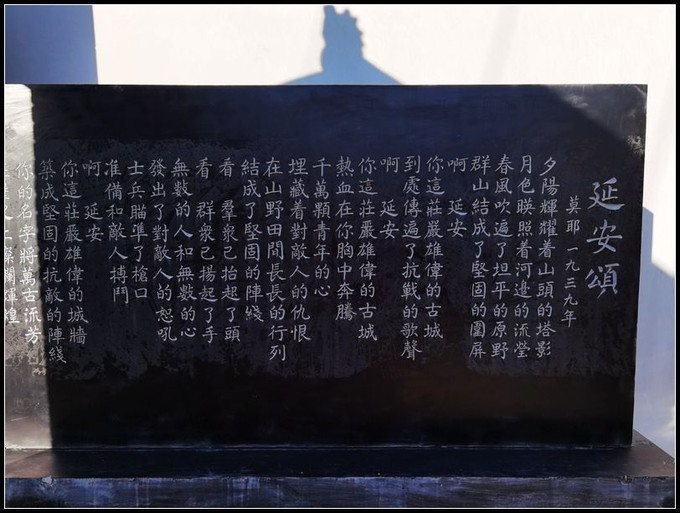 延安頌
莫耶 一九三九年
夕陽輝耀着山頭的塔影
月色暎照着河邊的流瑩
春風吹遍了坦平的原野
群山結成了堅固的圍屏
啊 延安
你這莊嚴雄偉的古城
到處傳遍了抗戰的歌聲
啊 延安
你這莊嚴雄偉的古城
熱血在你胸中奔騰
千萬顆青年的心
埋藏着對敵人的仇恨
在山野田間長長的行列
結成了堅固的陣綫
看 羣衆已抬起了頭
看 群衆已揚起了手
無數的人和無數的心
發出了對敵人的怒吼
士兵瞄準了槍口
准備和敵人搏鬥
啊 延安
你這莊嚴雄偉的城牆
築成堅固的抗敵的陣綫
你的名字將萬古流芳
在歷史上燦爛輝煌